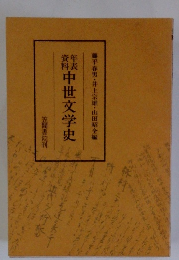 藤平春男・井上宗雄・山田昭全編
年表資料 中世文学史
笠間書院刊